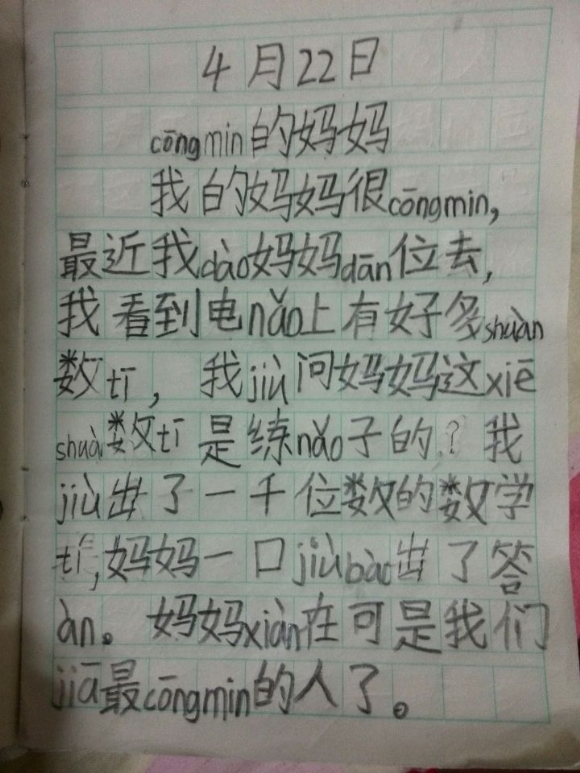 4月22日
cōngmin的妈妈
我的妈妈很cōngmin,
最近我dào妈妈dān位去,
我看到电nǎo上有好多shuàn
数tī，我jiù问妈妈这xiē
shuàn数tī是练nǎo子的？我
jiù出了一千位数的数学
tí,妈妈一口jiùbào出了答
àn。妈妈xiàn在可是我们
jiā最cōngmin的人了。